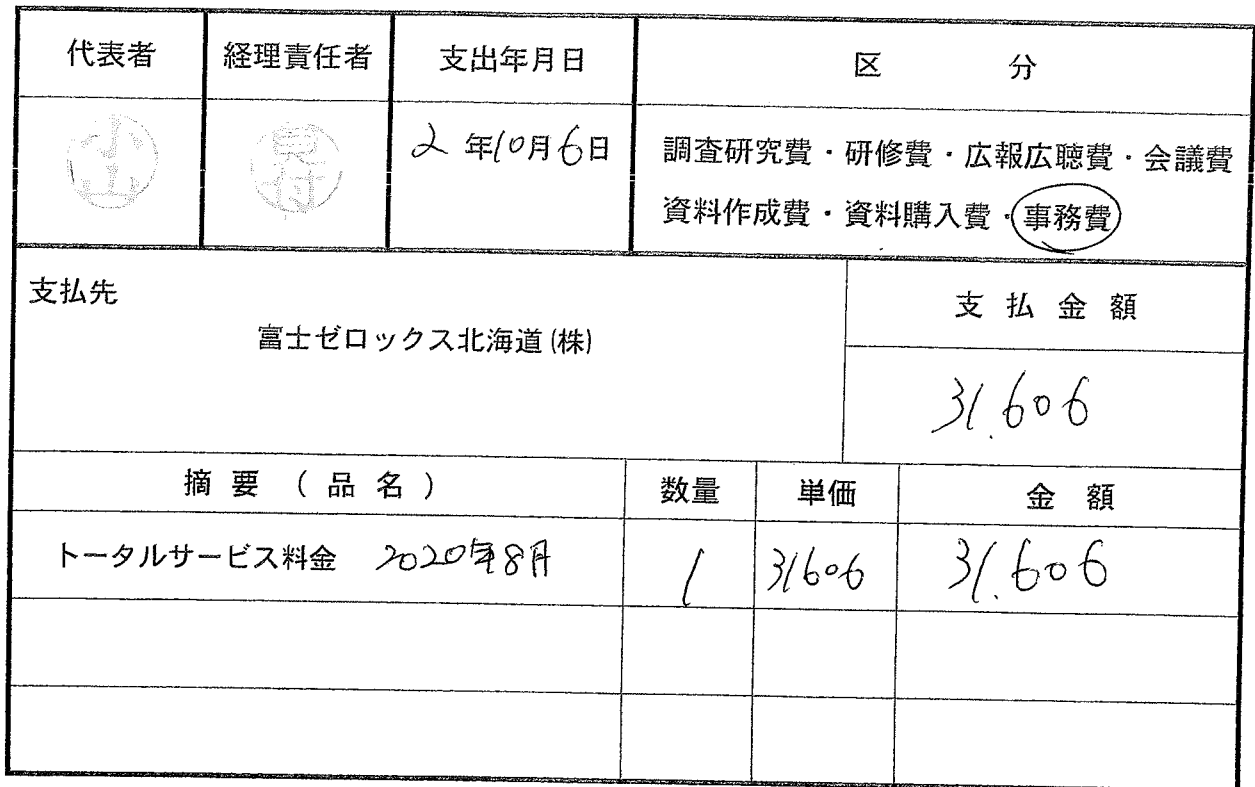 代表者 経理責任者 支出年月日 区 分
小山
2年10月6日
調査研究費・研修費・広報広聴費・会議費
資料作成費・資料購入費・事務費
支払先
支払金額
富士ゼロックス北海道(株)
31.606
摘要(品名) 数量 単価 金額
トータルサービス料金 2020年8月 1 31606 31.606